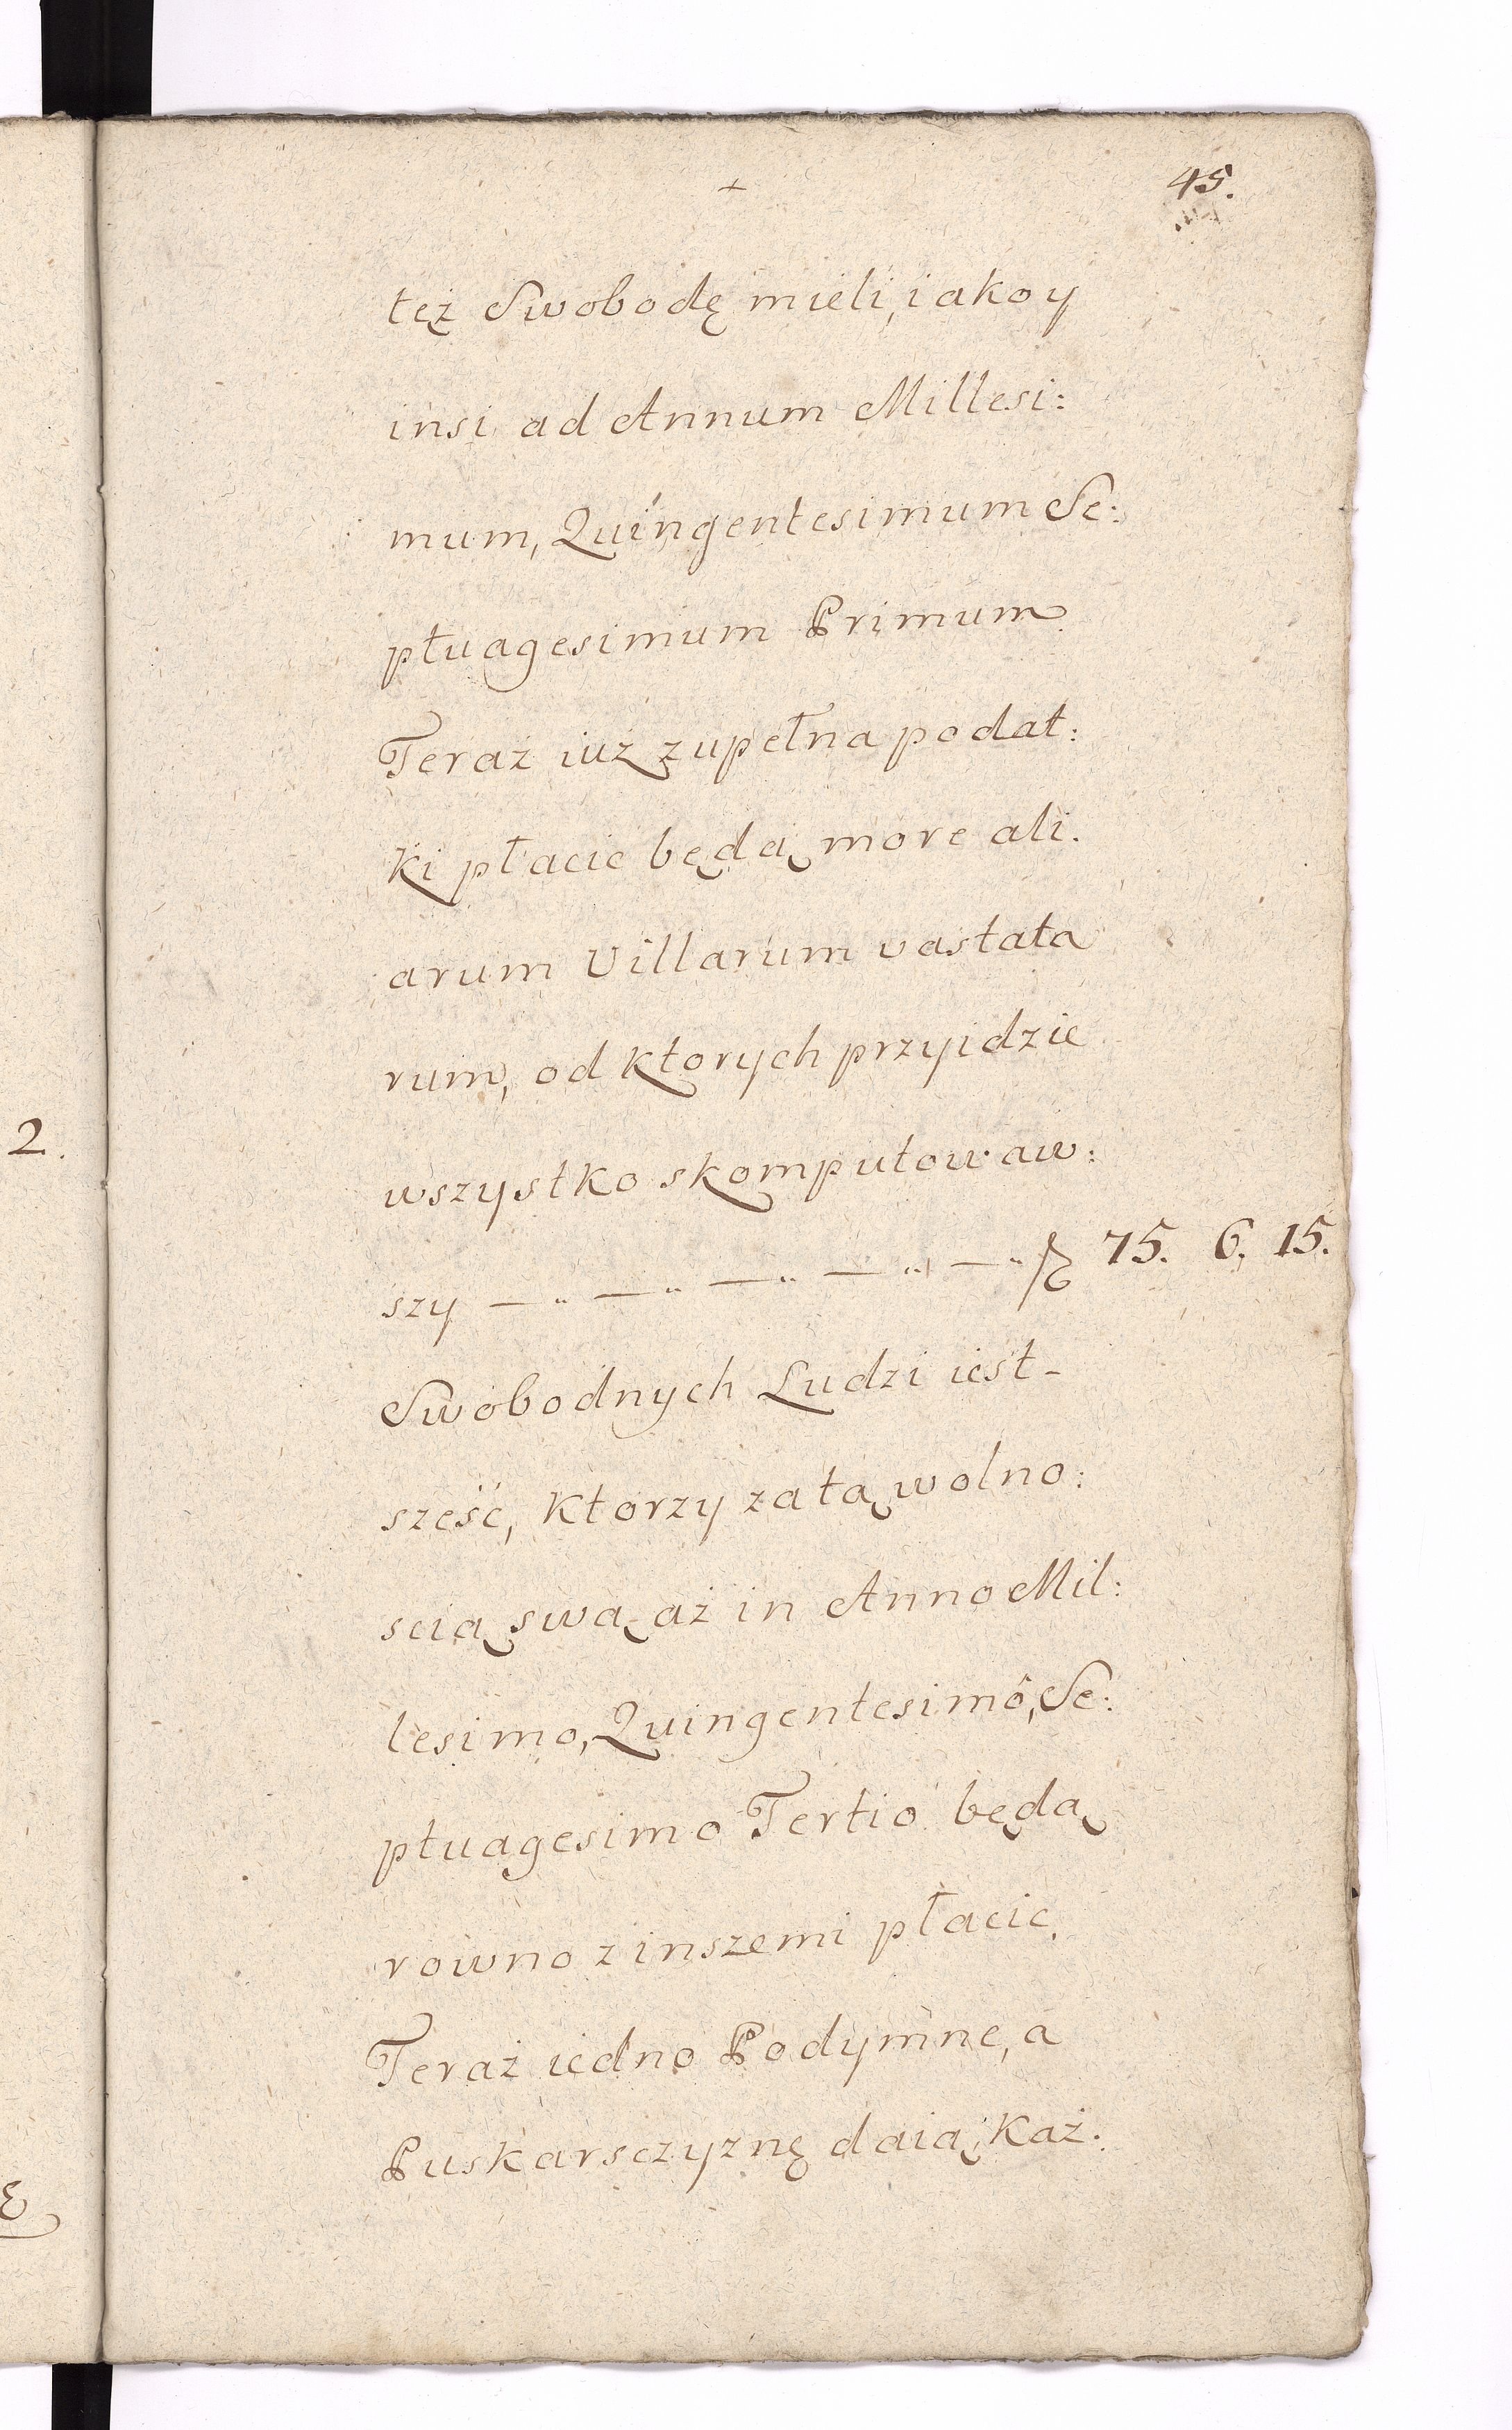 45.
też Swobodę mieli, iako y
insi ad Annum Millesi:
mum, Quingentesimum Se:
ptuagesimum Primum
Teraz iuz zupełna podat:
ki płacic będą more ali.
arum Villarum vastata
rum, od ktorych przyidzie
wszystko skomputowaw:
szy — „ — „ — „ — „ — „ 75. 6. 15.
Swobodnych Ludzi iest -
sześć, ktorzy za tą wolno:
scią swą aż in Anno Mil:
lesimo, Quingentesimô, Se:
ptuagesimo Tertio będą
rowno z inszemi płacic.
Teraz iedno Podymne, a
Puskarsczyznę daią, Każ:
2.